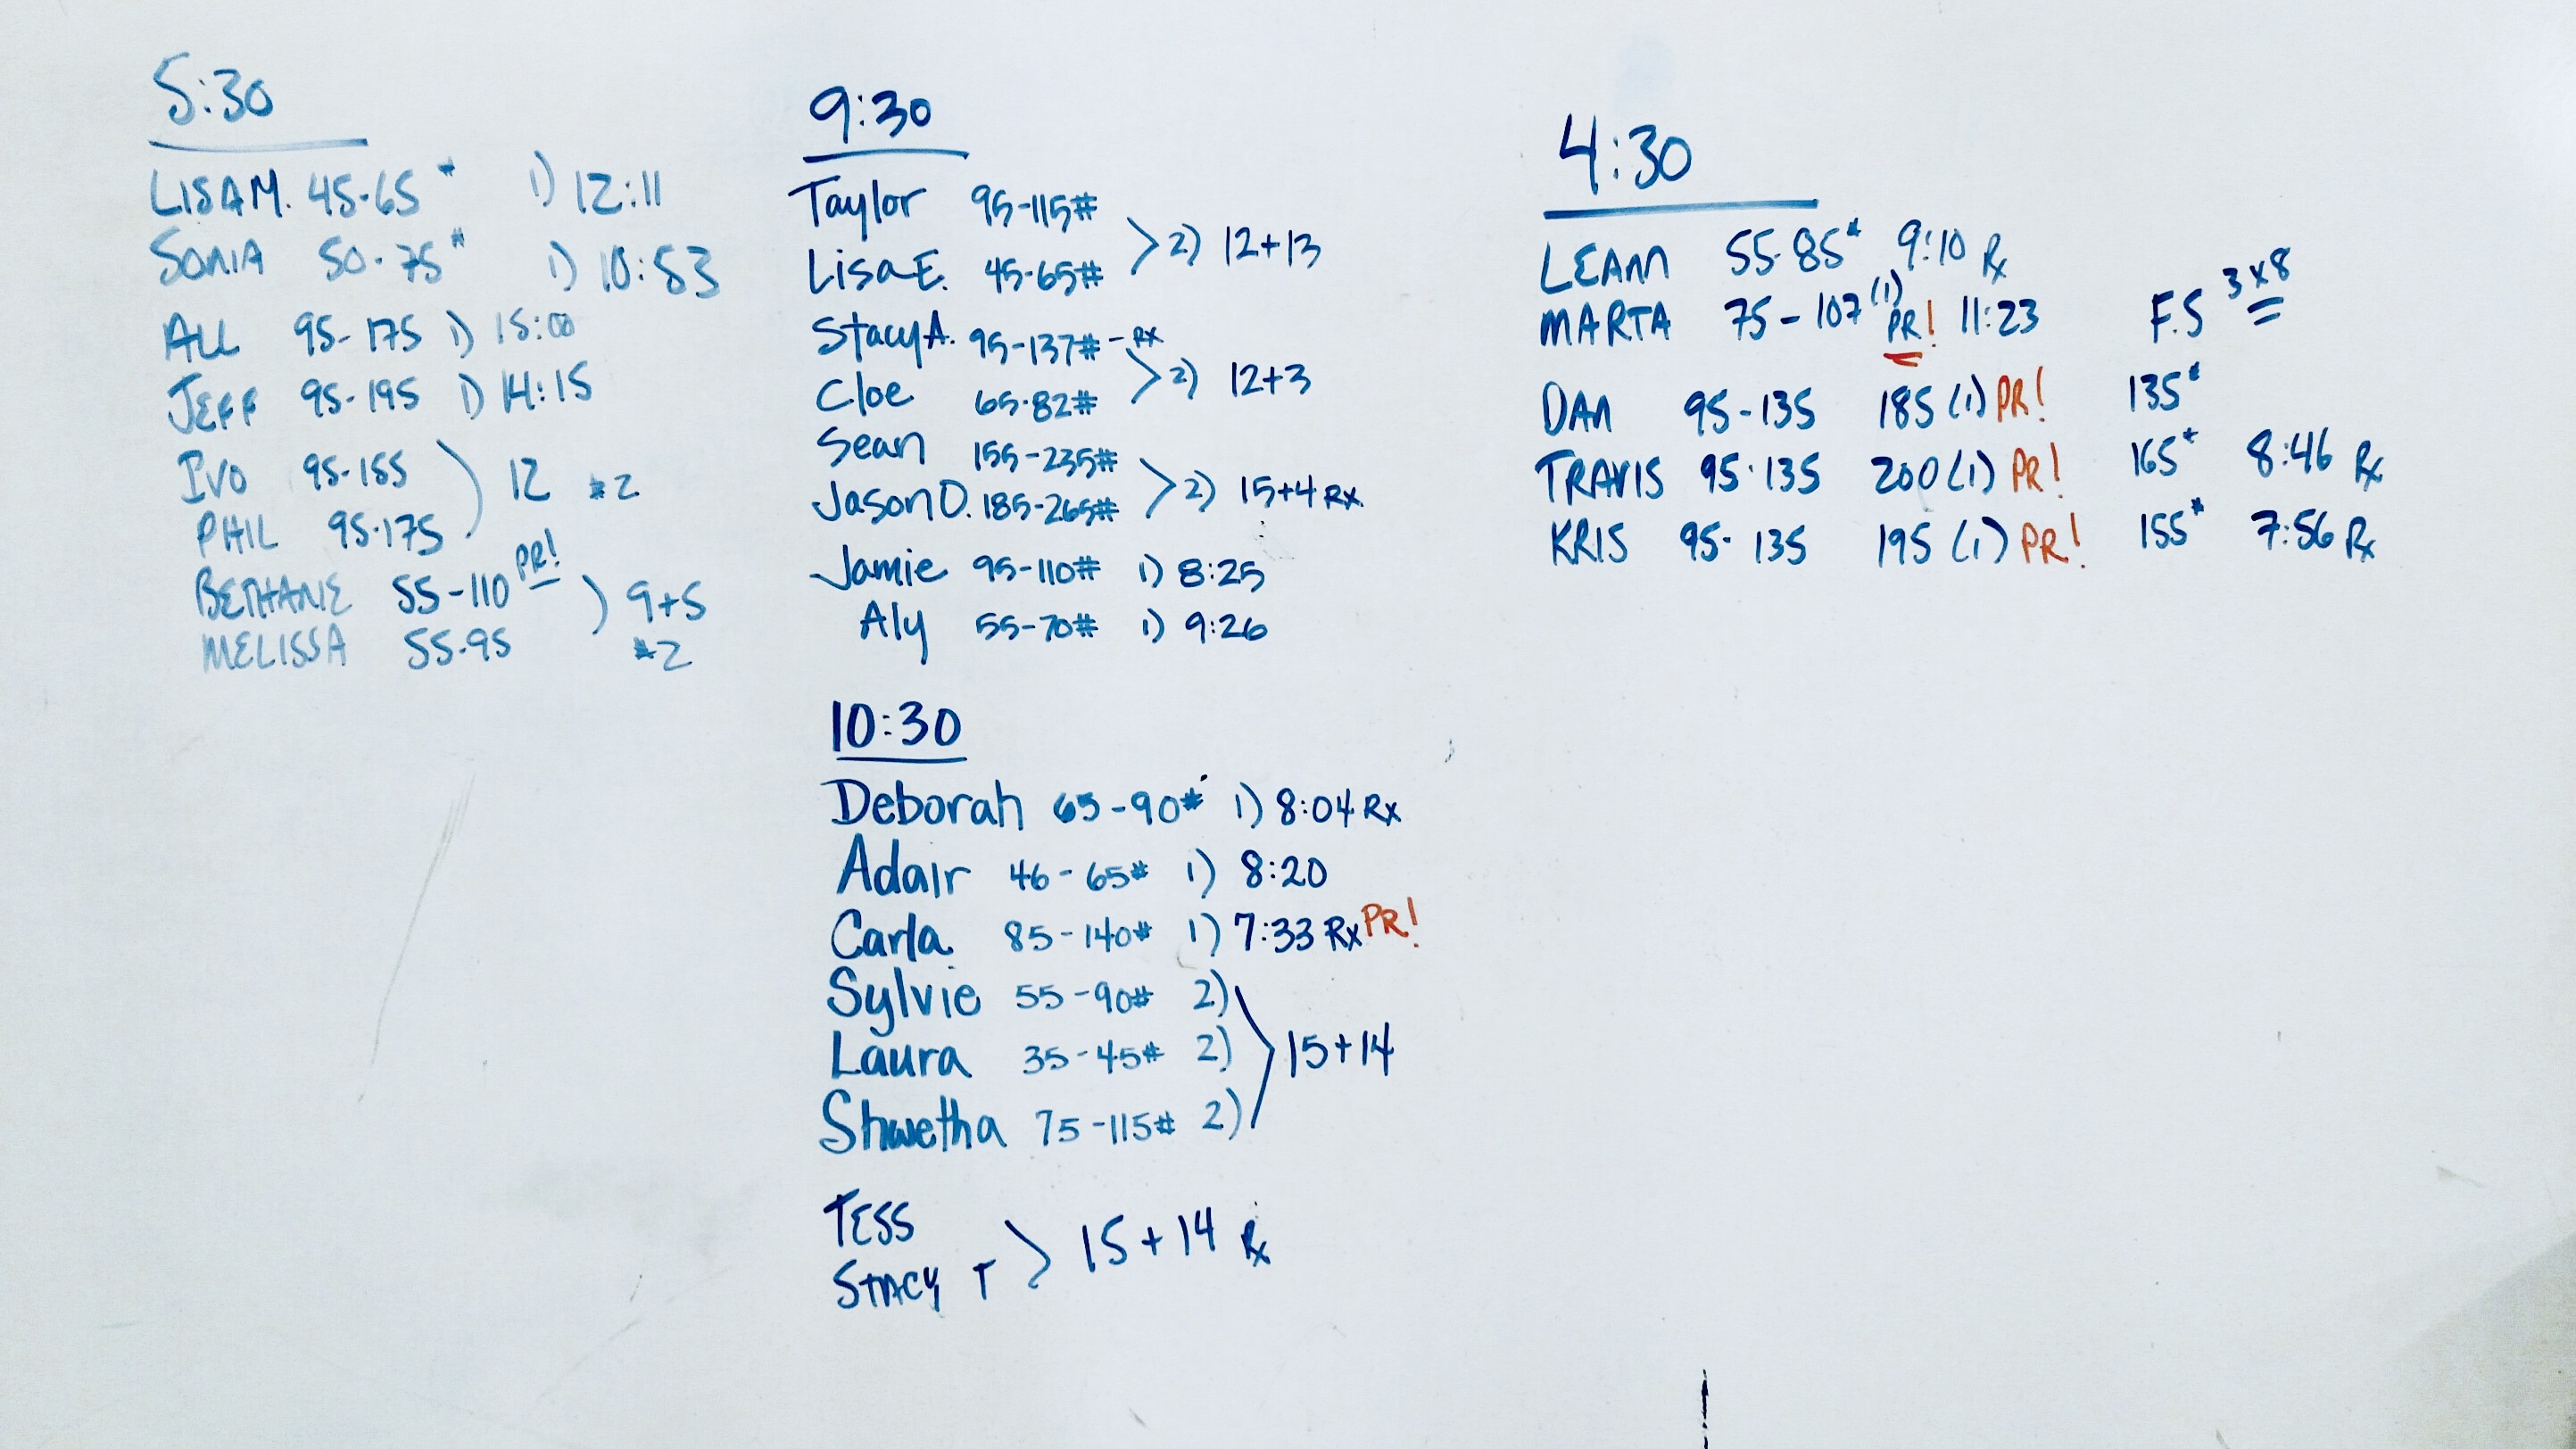 5:30
LISA M. 45-65# 1) 12:11
SONIA 50-75# 1) 10:53
ALL 95-175 1) 15:00
JEFF 95-195 1) 14:15
IVO 95-155
) 12 #2
PHIL 95-175
BETHANIE 55-110 PR!
) 9+5
MELISSA 55-95 #2
9:30
Taylor 95-115#
>2) 12+13
Lisa E. 45-65#
Stacy A. 95-137# - RX
>2) 12+3
Cloe 65-82#
Sean 155-235#
>2) 15+4 Rx
Jason O. 185-265#
Jamie 95-110# 1) 8:25
Aly 55-70# 1) 9:26
10:30
Deborah 65-90# 1) 8:04 Rx
Adair 46-65# 1) 8:20
Carla 85-140# 1) 7:33 Rx PR!
Sylvie 55-90# 2)
Laura 35-45# 2) > 15+14
Shwetha 75-115# 2)
TESS
> 15+14 Rx
STACY T
4:30
LEANN 55-85# 9:10 Rx
MARTA 75-107 (1) PR! 11:23 F.S 3x8
DAN 95-135 185 (1) PR! 135#
TRAVIS 95-135 200 (1) PR! 165# 8:46 Rx
KRIS 95-135 195 (1) PR! 155# 7:56 Rx